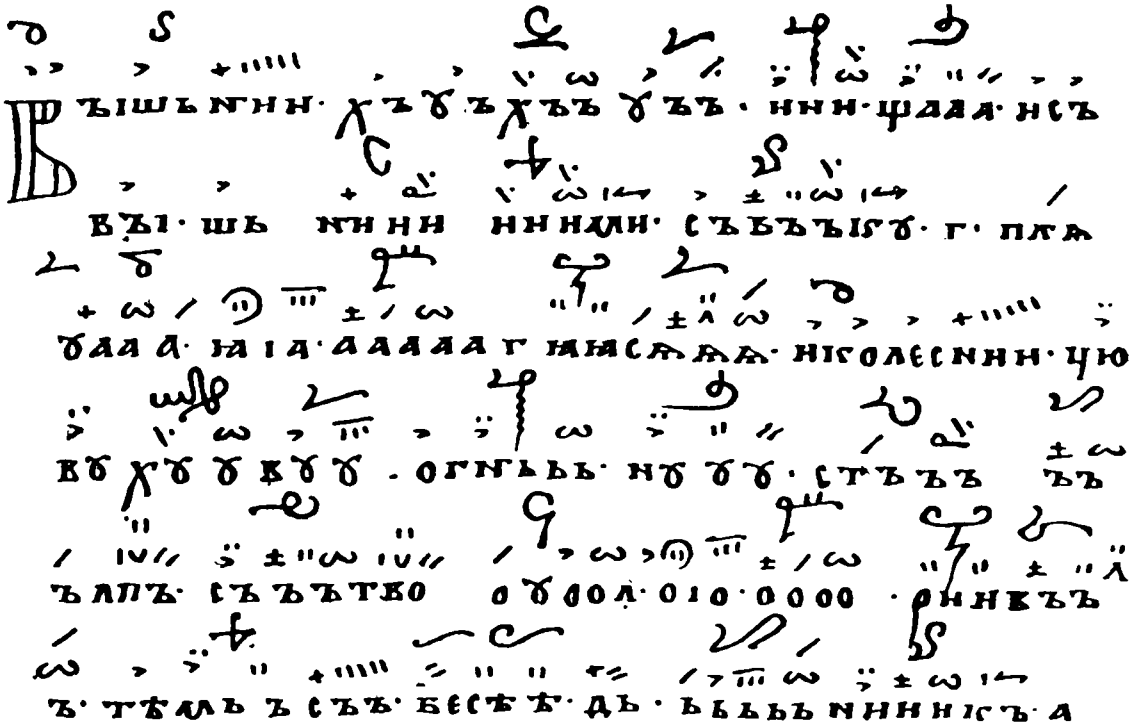 Въішьнии· хъꙋъхъъ ꙋъъ · иии·щааа· исъ
въі·шь нии ииими· съвъъъікꙋ· г· плѧ
ꙋааа а· ꙗіа· ааааа г ꙗꙗсѧѧѧ· николеснии· цю
вꙋ хꙋ ꙋ вꙋꙋ . огнььь· иꙋꙋꙋ· стъъъ ъъ
ълпъ· съъътво оꙋоол· оіо·оооо ·риивъъ
ъ· тѣмь ъ съъ· бесѣѣ· дь· ььььь нииикъ· а